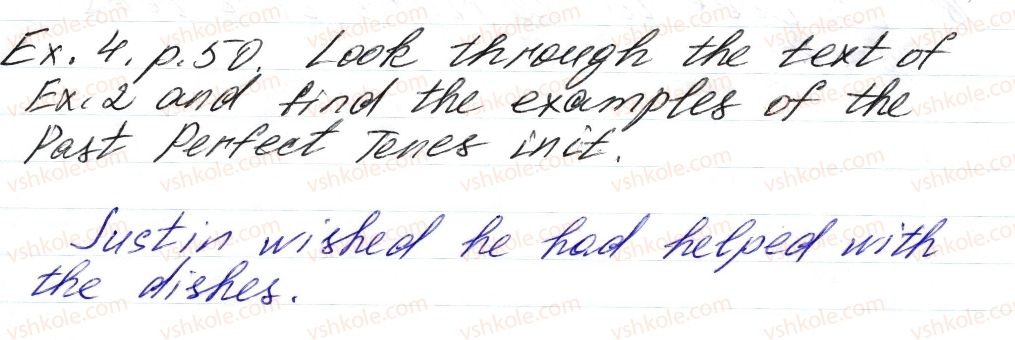 Ex. 4. p.50. Look through the text of
Ex. 2 and find the examples of the
Past Perfect Tenes in it.
Justin wished he had helped with
the dishes.